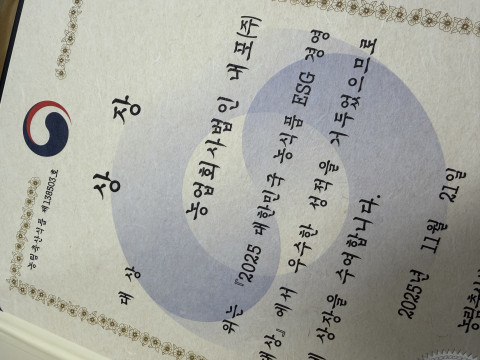 농림축산식품 제138503호
상 장
대 상
농업회사법인 내포(주)
위는 『2025 대한민국 농식품 ESG 경영
대상』에서 우수한 성적을 거두었으므로
상장을 수여합니다.
2025년 11월 21일
농림축산